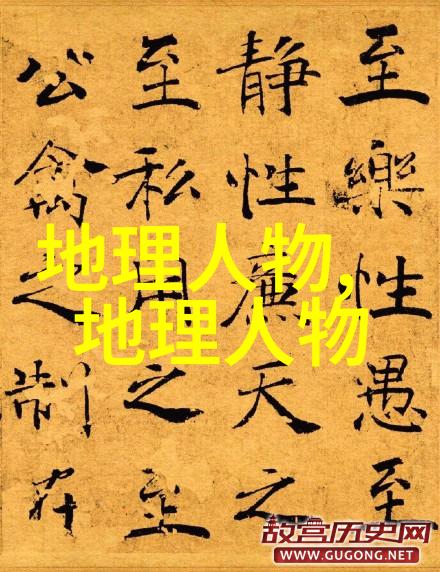 至樂性愚至
静性廉天之
至私用之至
公禽之制在
地理人物,
地理人物
故宫历史网
WWW.GUGONG.NET